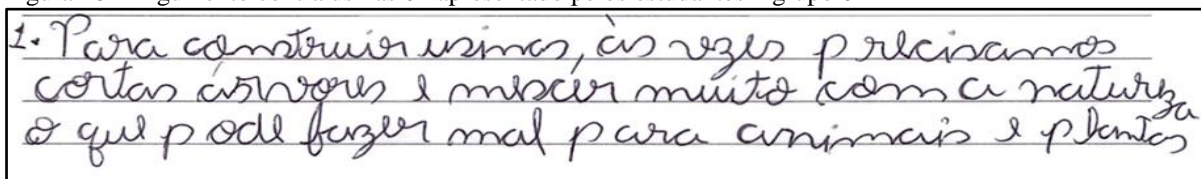 1. Para construir usinas, às vezes precisamos
cortar árvores e mexer muito com a natureza
o que pode fazer mal para animais e plantas